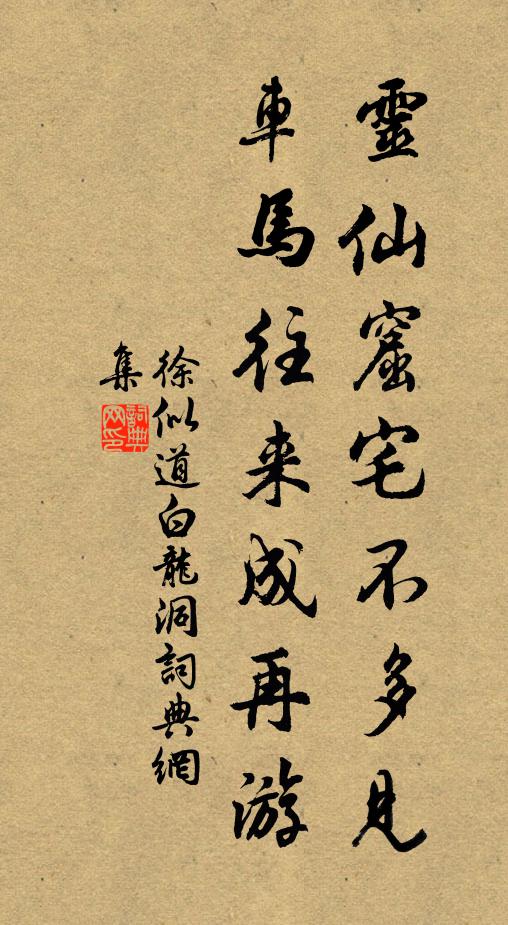 靈仙窟宅不多見
車馬往来成再游
徐似道白龍洞詞典網
集
詞典
网印